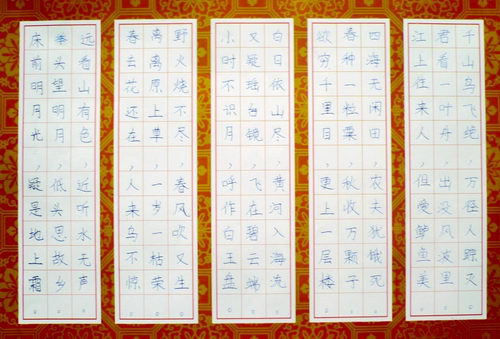 床前明月光，疑是地上霜。
举头望明月，低头思故乡。
远看山有色，近听水无声。
春去花还在，人来鸟不惊。
离离原上草，一岁一枯荣。
野火烧不尽，春风吹又生。
小时不识月，呼作白玉盘。
又疑瑶台镜，飞在碧云端。
白日依山尽，黄河入海流。
欲穷千里目，更上一层楼。
春种一粒粟，秋收万颗子。
四海无闲田，农夫犹饿死。
江上往来人，但爱鲈鱼美。
君看一叶舟，出没风波里。
千山鸟飞绝，万径人踪灭。